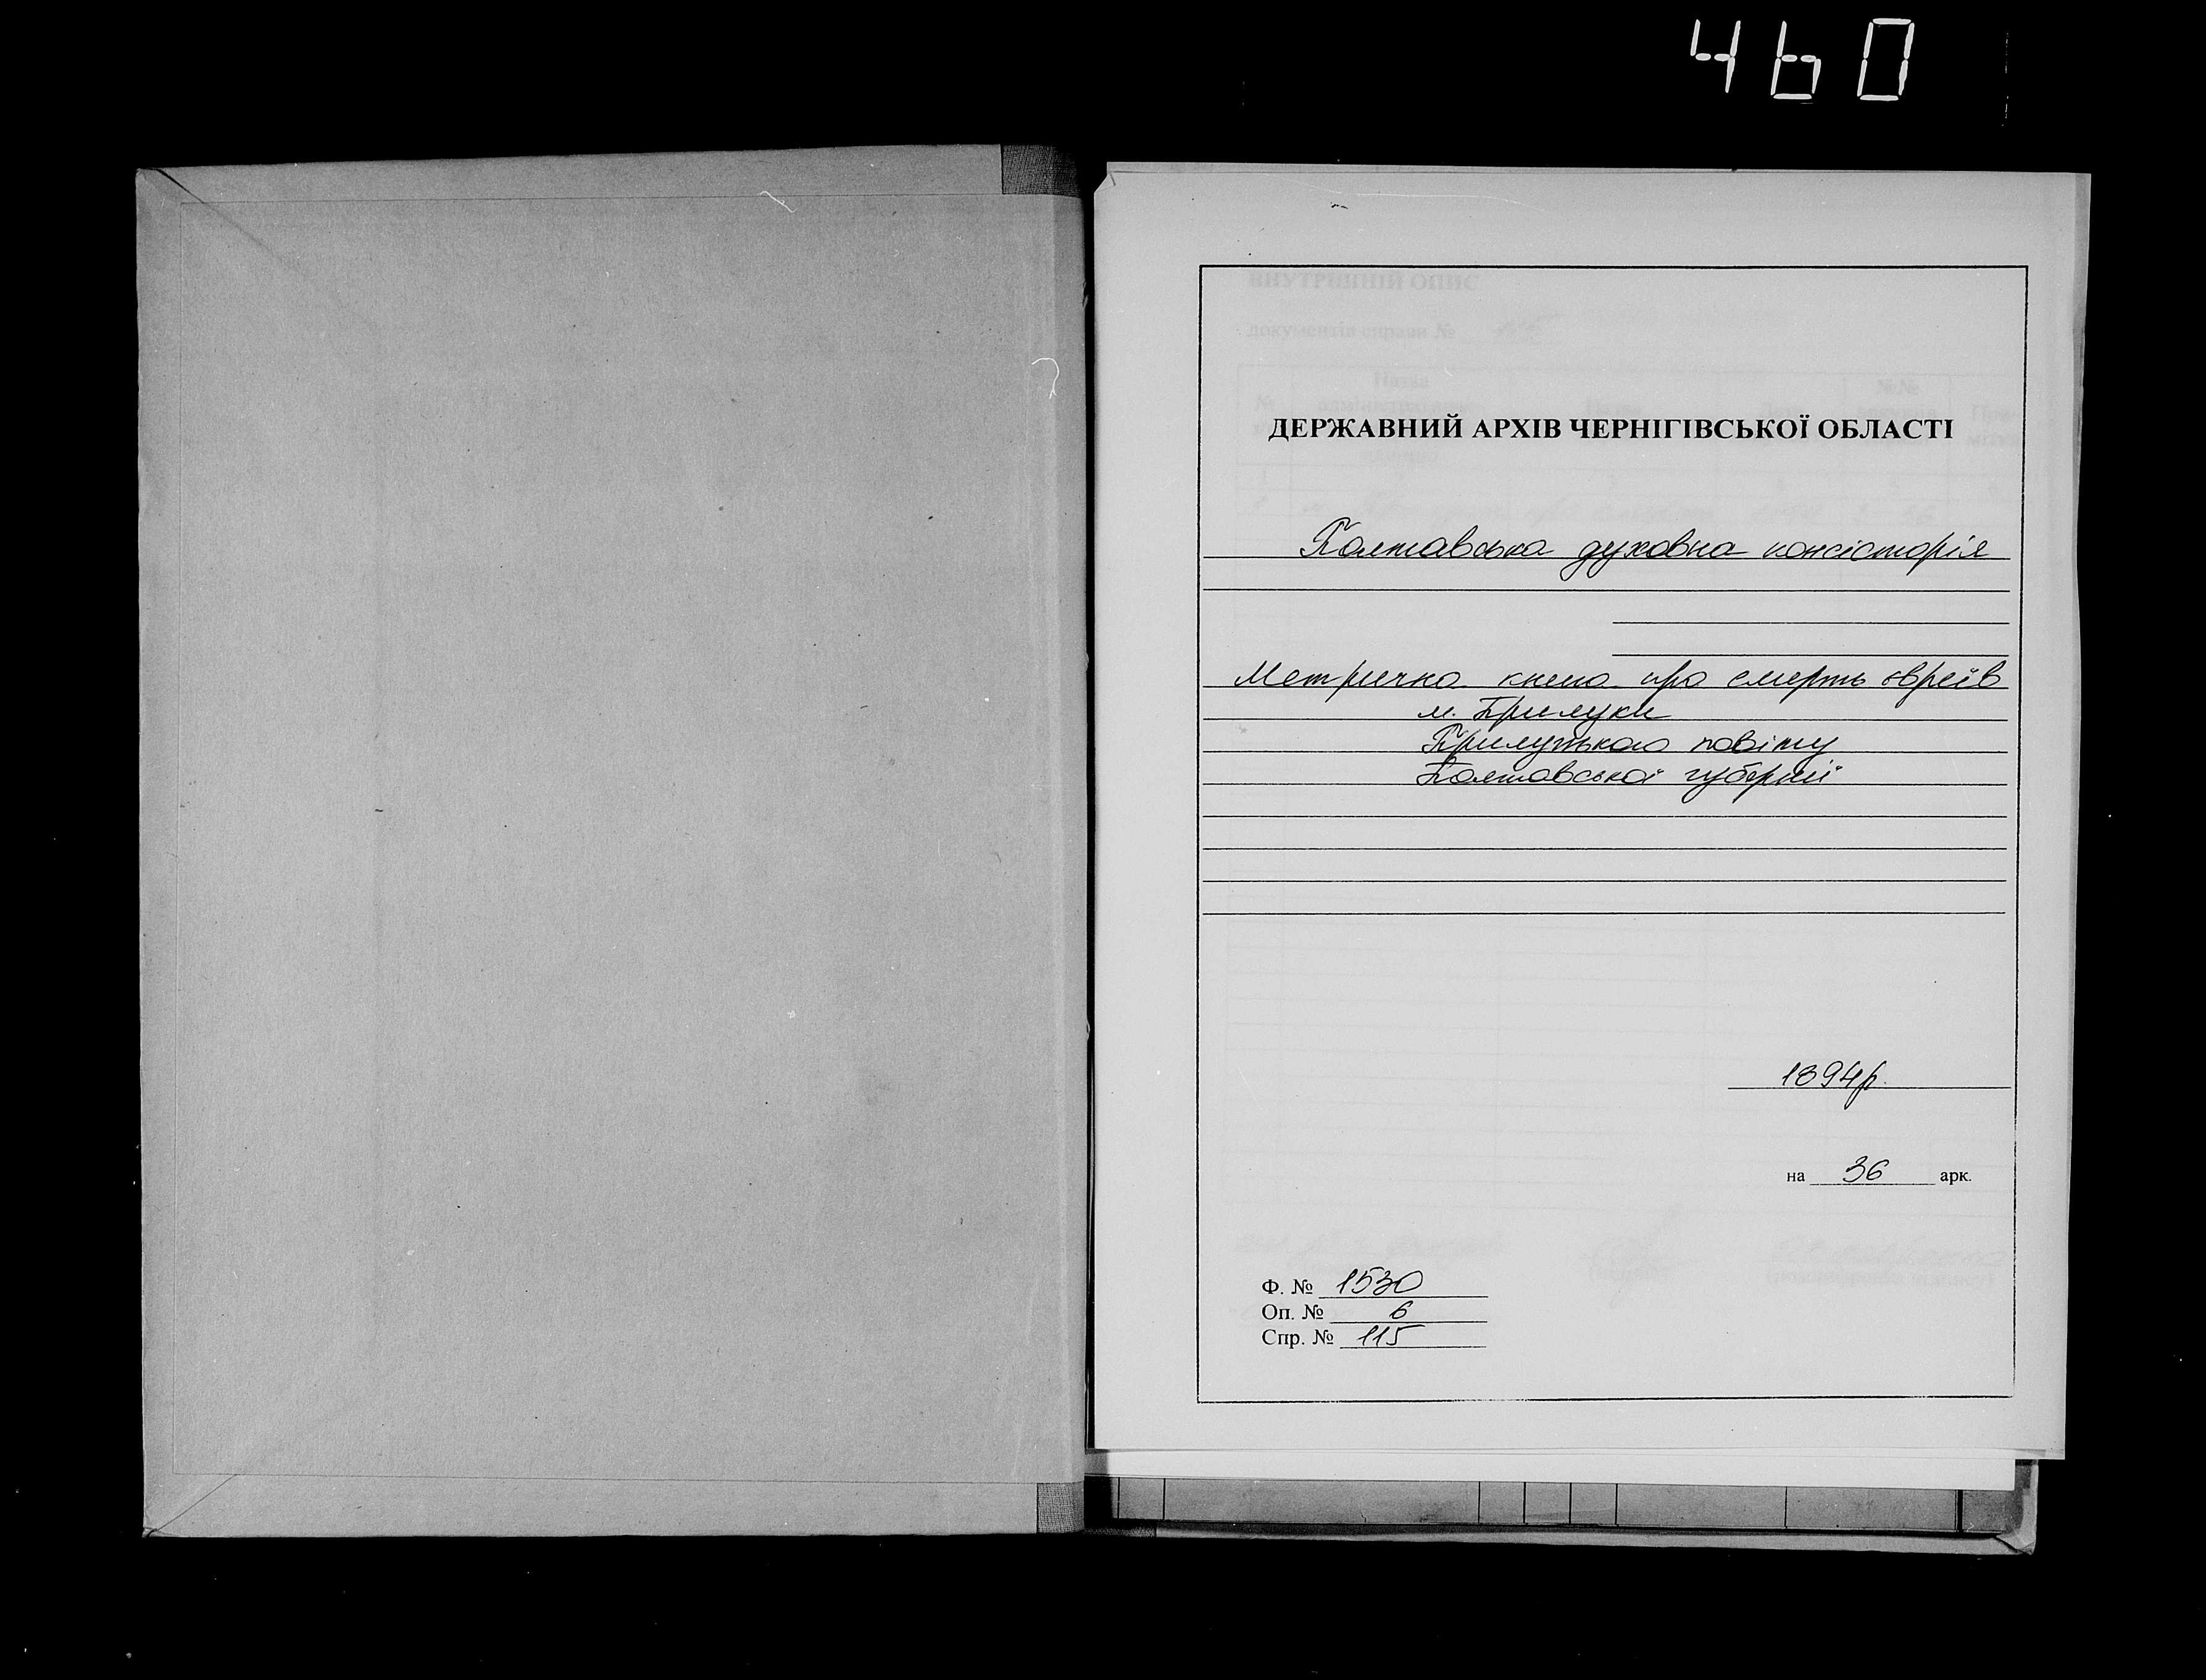 460
ДЕРЖАВНИЙ АРХІВ ЧЕРНІГІВСЬКОЇ ОБЛАСТІ
Полтавська духовна консісторія
Метрична книга про смерть євреїв
м. Прилуки
Прилуцького повіту
Полтавської губернії
1894р.
на 36 арк.
Ф. № 1530
Оп. № 6
Спр. № 115
ВНУТРІШНІЙ ОПИС
документів справи № 115